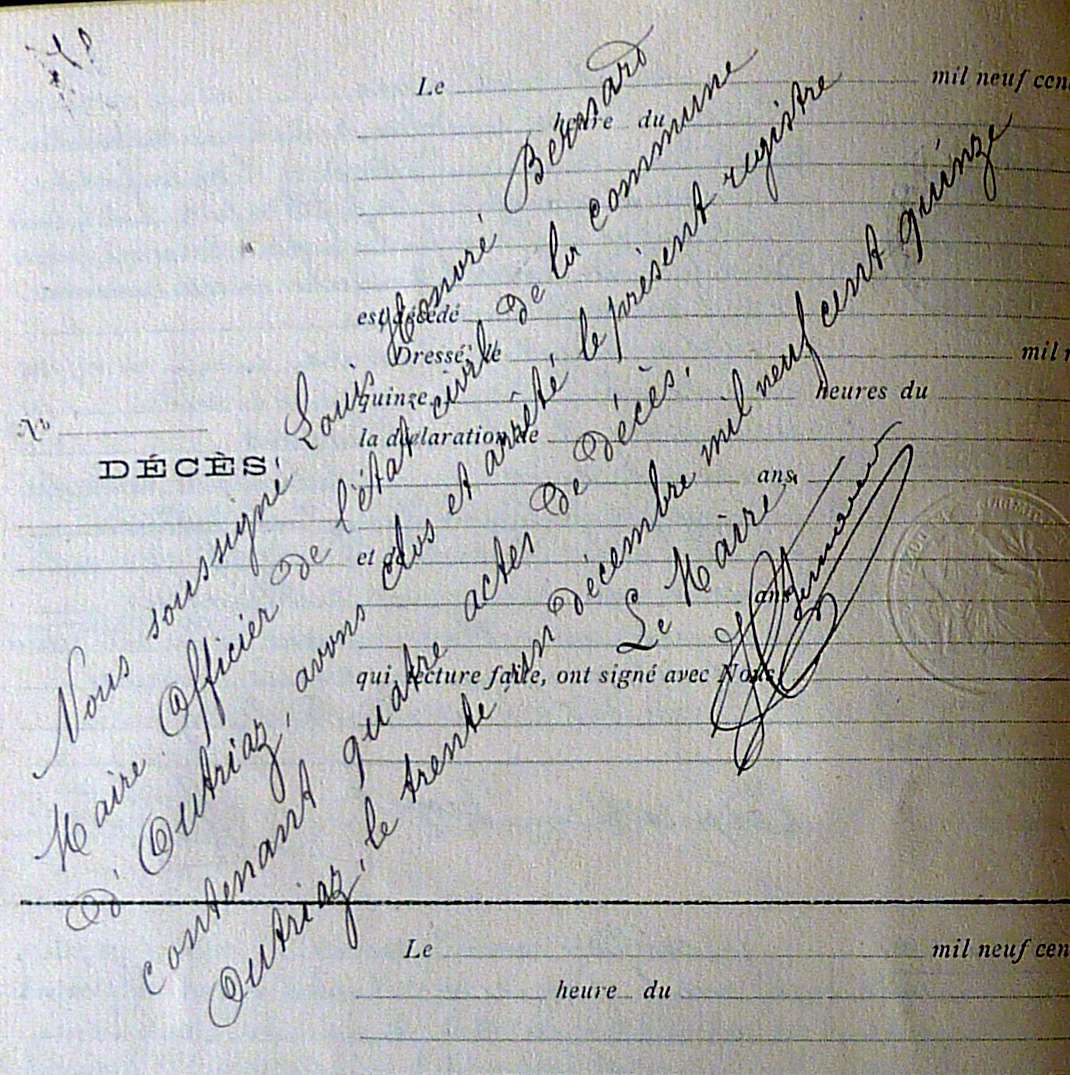 Le mil neuf cen
heure du
est décédé
Dressé, le mil n
quinze heures du
No la déclaration de
DÉCÈS
ans
et de
ans
qui, lecture faite, ont signé avec Nous
Nous soussigné Louis Honoré Bernard
Maire Officier de l'état civil de la commune
d'Outriaz, avons clos et arrêté le présent registre
contenant quatre actes de décès.
Outriaz, le trente un décembre mil neuf cent quinze
Le Maire
Le mil neuf cen
heure du